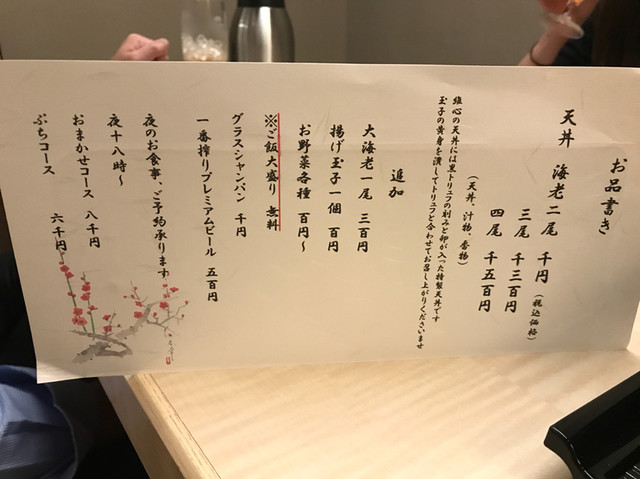 お品書き
天丼 海老二尾 千円 (税込価格)
三尾 千三百円
四尾 千五百円
(天丼、汁物、香物)
維心の天丼には黒トリュフの刻みと卵が入った特製天丼です
玉子の黄身を潰してトリュフと合わせてお召し上がりくださいませ
追加
大海老一尾 三百円
揚げ玉子一個 百円
お野菜各種 百円〜
※ご飯大盛り 無料
グラスシャンパン 千円
一番搾りプレミアムビール 五百円
夜のお食事、ご予約承ります
夜十八時〜
おまかせコース 八千円
ぷちコース 六千円